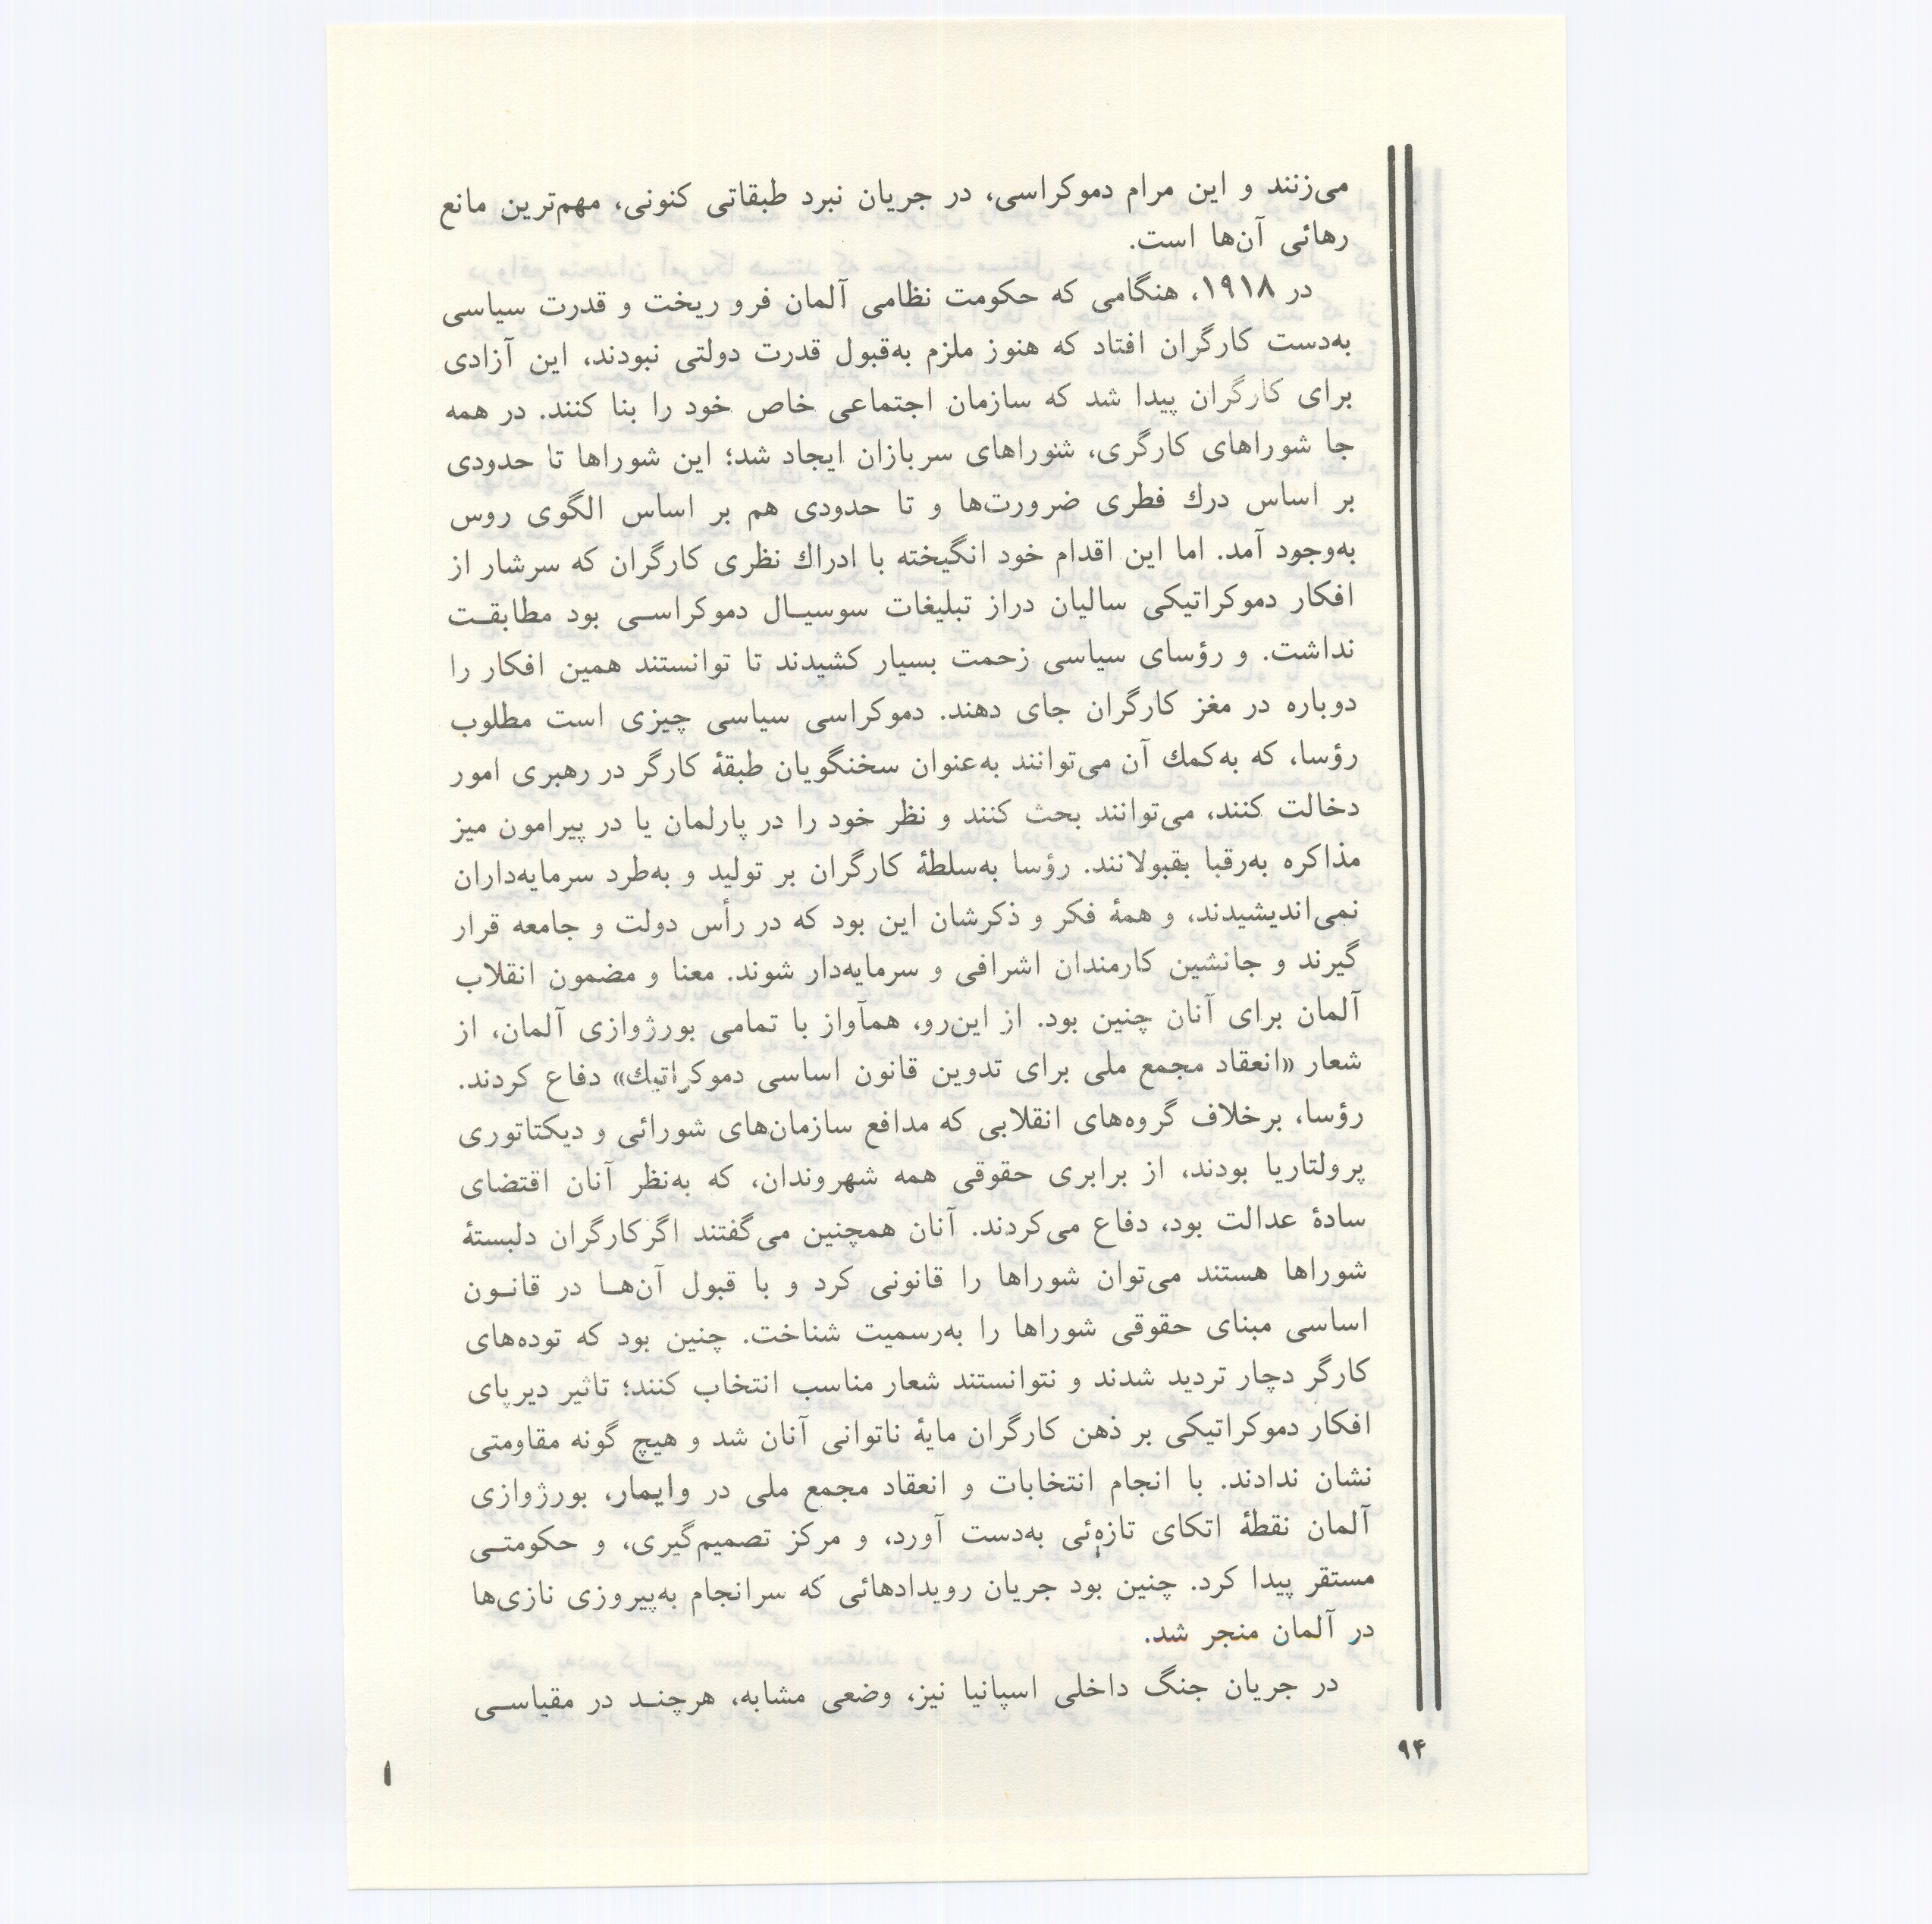 می‌زنند و این مرام دموکراسی، در جریان نبرد طبقاتی کنونی، مهم‌ترین مانع
رهائی آن‌ها است.
در ۱۹۱۸، هنگامی که حکومت نظامی آلمان فرو ریخت و قدرت سیاسی
به‌دست کارگران افتاد که هنوز ملزم به‌قبول قدرت دولتی نبودند، این آزادی
برای کارگران پیدا شد که سازمان اجتماعی خاص خود را بنا کنند. در همه
جا شوراهای کارگری، شوراهای سربازان ایجاد شد؛ این شوراها تا حدودی
بر اساس درك فطری ضرورت‌ها و تا حدودی هم بر اساس الگوی روس
به‌وجود آمد. اما این اقدام خود انگیخته با ادراك نظری کارگران که سرشار از
افکار دموکراتیکی سالیان دراز تبلیغات سوسیـال دموکراسـی بود مطابقـت
نداشت. و رؤسای سیاسی زحمت بسیار کشیدند تا توانستند همین افکار را
دوباره در مغز کارگران جای دهند. دموکراسی سیاسی چیزی است مطلوب
رؤسا، که به‌کمك آن می‌توانند به‌عنوان سخنگویان طبقهٔ کارگر در رهبری امور
دخالت کنند، می‌توانند بحث کنند و نظر خود را در پارلمان یا در پیرامون میز
مذاکره به‌رقبا بقبولانند. رؤسا به‌سلطهٔ کارگران بر تولید و به‌طرد سرمایه‌داران
نمی‌اندیشیدند، و همهٔ فکر و ذکرشان این بود که در رأس دولت و جامعه قرار
گیرند و جانشین کارمندان اشرافی و سرمایه‌دار شوند. معنا و مضمون انقلاب
آلمان برای آنان چنین بود. از این‌رو، همآواز با تمامی بورژوازی آلمان، از
شعار «انعقاد مجمع ملی برای تدوین قانون اساسی دموکراتیك» دفاع کردند.
رؤسا، برخلاف گروه‌های انقلابی که مدافع سازمان‌های شورائی و دیکتاتوری
پرولتاریا بودند، از برابری حقوقی همه شهروندان، که به‌نظر آنان اقتضای
سادهٔ عدالت بود، دفاع می‌کردند. آنان همچنین می‌گفتند اگر کارگران دلبستهٔ
شوراها هستند می‌توان شوراها را قانونی کرد و با قبول آن‌هـا در قانـون
اساسی مبنای حقوقی شوراها را به‌رسمیت شناخت. چنین بود که توده‌های
کارگر دچار تردید شدند و نتوانستند شعار مناسب انتخاب کنند؛ تاثیر دیرپای
افکار دموکراتیکی بر ذهن کارگران مایهٔ ناتوانی آنان شد و هیچ گونه مقاومتی
نشان ندادند. با انجام انتخابات و انعقاد مجمع ملی در وایمار، بورژوازی
آلمان نقطهٔ اتکای تازه‌ئی به‌دست آورد، و مرکز تصمیم‌گیری، و حکومتـی
مستقر پیدا کرد. چنین بود جریان رویدادهائی که سرانجام به‌پیروزی نازی‌ها
در آلمان منجر شد.
در جریان جنگ داخلی اسپانیا نیز، وضعی مشابه، هرچنـد در مقیاسـی
۹۴